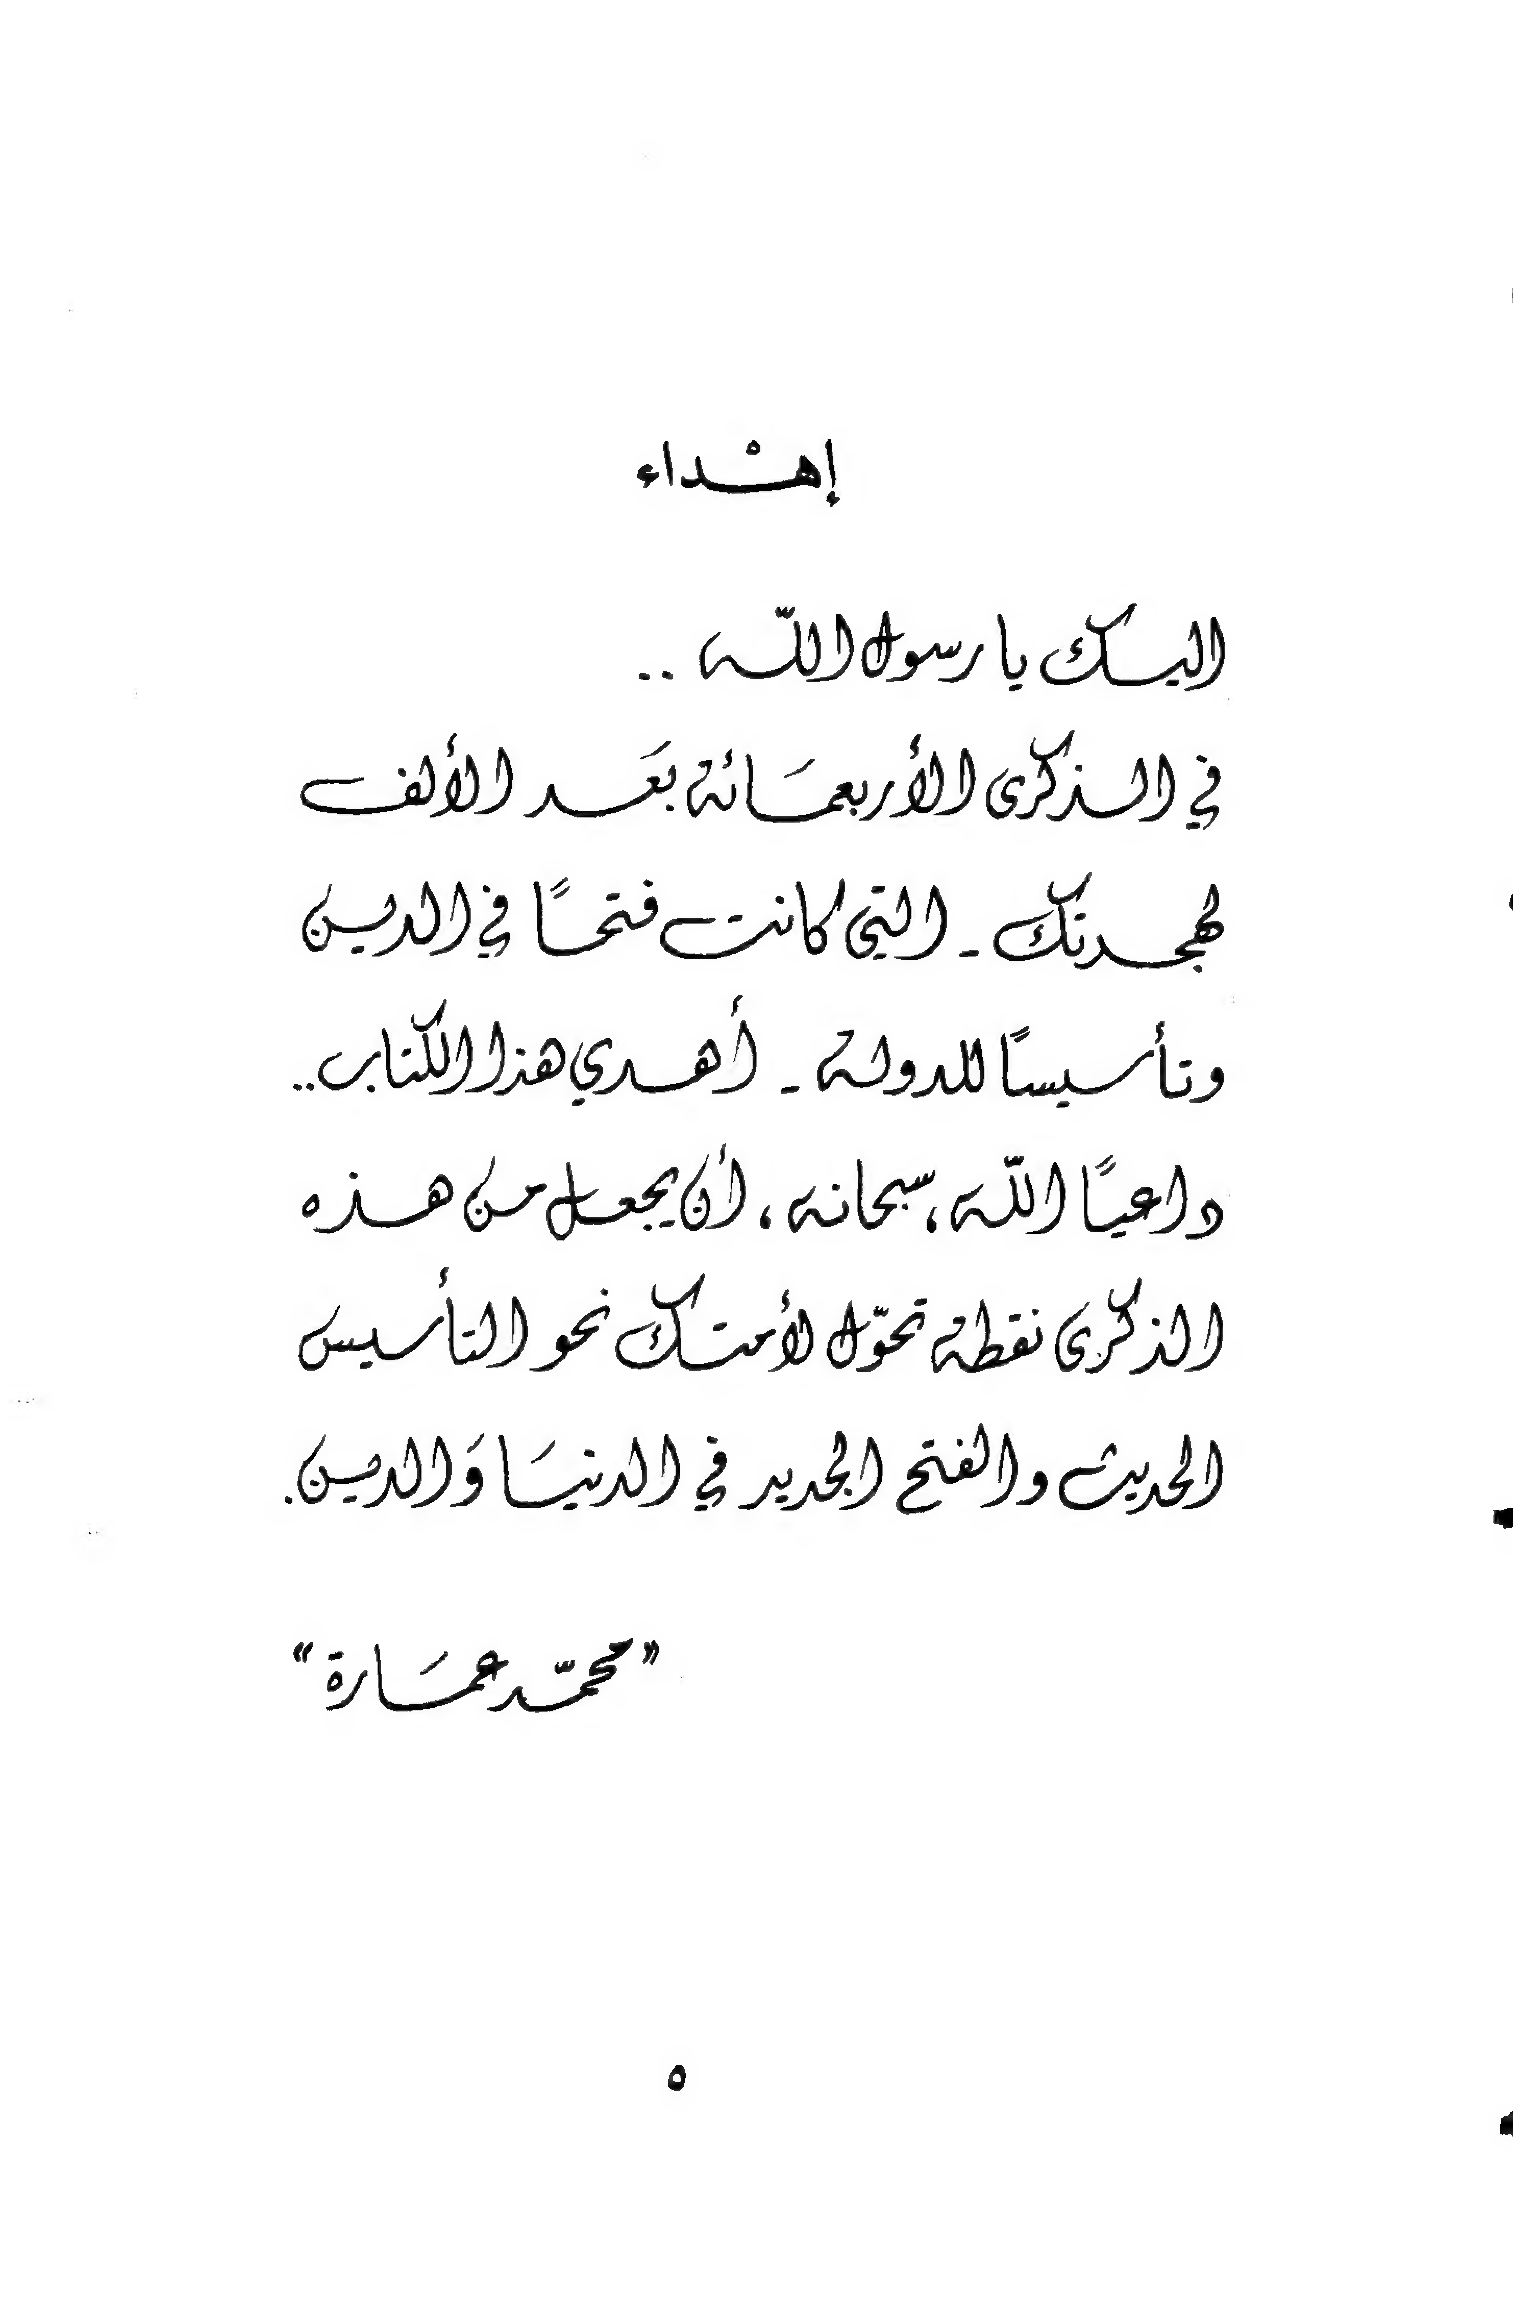 إهْداء
اليك يا رسول اللّه ..
في الذكرى الأربعمَائة بَعد الألف
لهجرتك - التي كانت فتحًا في الدين
وتأسيسًا للدولة - أهدي هذا الكتاب..
داعيًا اللّه، سبحانه، أن يجعل من هذه
الذكرى نقطة تحوّل لأمتك نحو التأسيس
الحديث والفتح الجديد في الدنيَا وَالدين.
"محمّد عمَارة"
٥